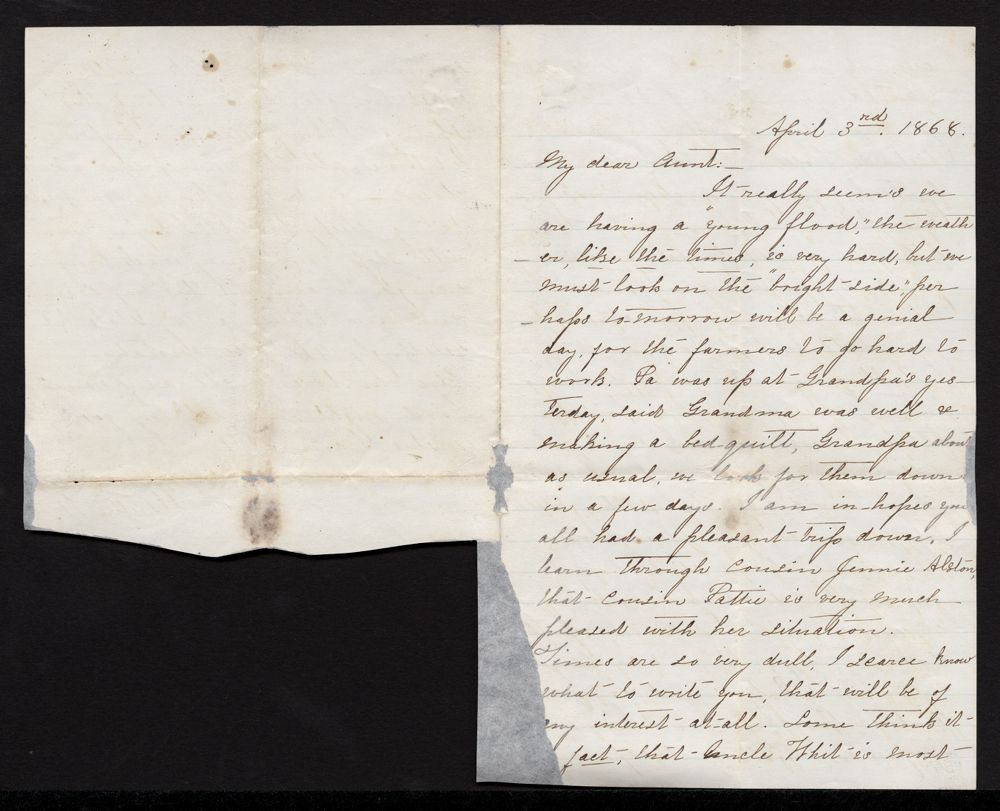 April 3rd. 1868.
My dear Aunt:—
It really seem's we
are having a "young flood," the weath
-er, like the times, is very hard, but we
must look on the "bright-side" per
-haps to-morrow will be a genial
day, for the farmers to go hard to
work. Pa was up at Grandpa's yes-
terday, said Grandma was well &
making a bed quilt, Grandpa about
as usual, we look for them down
in a few days. I am in-hopes you
all had a pleasant trip down, I
learn through Cousin Jennie Alston,
that Cousin Pattie is very much
pleased with her situation.
Times are so very dull, I scarce know
what to write you, that will be of
any interest at-all. Some think it
fact, that Uncle Whit is most